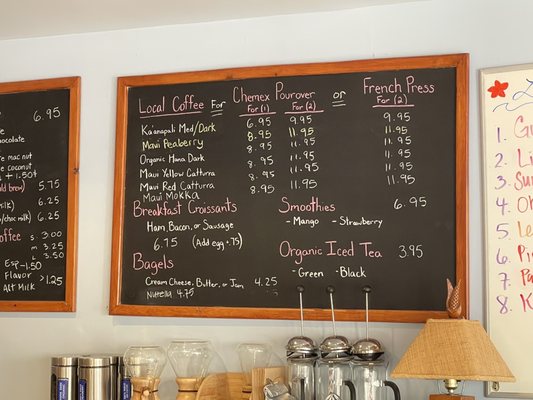 6.95
5.75
6.25
6.25
S 3.00
M 3.25
L 3.50
Esp-1.50
Flavor
Alt Milk
>1.25
Local Coffee For Chemex Pourover or French Press
For (1) For (2) For (2)
Ka'anapali Med/Dark 6.95 9.95 9.95
Maui Peaberry 8.95 11.95 11.95
Organic Hana Dark 8.95 11.95 11.95
Maui Yellow Catturra 8.95 11.95 11.95
Maui Red Catturra 8.95 11.95 11.95
Maui Mokka 8.95 11.95 11.95
Breakfast Croissants
Ham, Bacon, or Sausage
6.75 (Add egg +.75)
Bagels
Cream Cheese, Butter, or Jam 4.25
Nutella 4.75
Smoothies 6.95
- Mango - Strawberry
Organic Iced Tea 3.95
- Green - Black
1.
2.
3.
4.
5.
6.
7.
8.